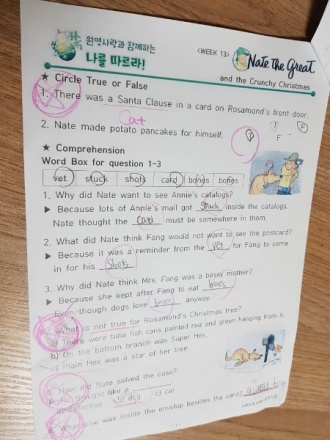 원영사랑과 함께하는
나를 따르라!
<WEEK 13>
Nate the Great
and the Crunchy Christmas
★ Circle True or False
1. There was a Santa Clause in a card on Rosamond's front door.
Cat
2. Nate made potato pancakes for himself.
T
F
★ Comprehension
Word Box for question 1-3
vet stuck shots card bones
1. Why did Nate want to see Annie's catalogs?
▶ Because lots of Annie's mail got stuck inside the catalogs.
Nate thought the card must be somewhere in them.
2. What did Nate think Fang would not want to see the postcard?
▶ Because it was a reminder from the vet for Fang to come
in for his shots
3. Why did Nate think Mrs. Fang was a bossy mother?
▶ Because she kept after Fang to eat bones
Even though dogs love bones anyway.
4. What is not true for Rosamond's Christmas tree?
a) There were tuna fish cans painted red and green hanging from it.
b) On the bottom branch was Super Hex.
c) Plain Hex was a star of her tree.
5. How did Nate solved the case?
thought like a
cat
6. What else was inside the envelop besides the card?